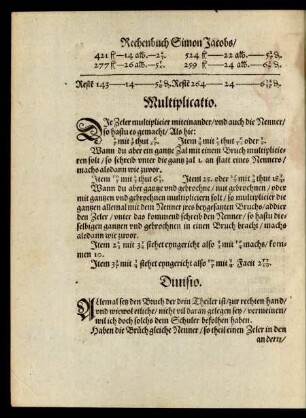 Rechenbuch Simon Jacobs/
421 fl — 14 alb. — 2
524 fl — 22 alb. —
277 fl — 26 alb. — 5
259 fl — 24 alb. — 6
Restt 143 — 14 — Restt 264 — 24 —
Multiplicatio.
Die Zeler multiplicier miteinander/ vnd auch die Nenner/
so hastu es gemacht/ Als hie:
mit thut Item mit thut oder
Wann du aber ein gantze Zal mit einem Bruch multiplicie-
ren solt/ so schreib vnter die gantz zal 1. an statt eines Nenners/
machs alsdann wie zuvor.
Item mit thut Item 25. oder mit thut
Wann du aber gantze vnd gebrochne/ mit gebrochnen/ oder
mit gantzen vnd gebrochnen multiplicieren solt/ so multiplicier die
gantzen allemal mit dem Nenner jres beygesatzten Bruchs/ addier
den Zeler/ vnter das kommend schreib den Nenner/ so hastu die-
selbigen gantzen vnd gebrochnen in einen Bruch bracht/ machs
alsdann wie zuvor.
Item 2 mit 3 stehet eyngericht also mit machs/ kom-
men 10.
Item 3 mit stehet eyngericht also mit Facit
Diuisio.
Allemal setz den Bruch der dein Theiler ist/ zur rechten hand/
vnd wiewol etliche/ nicht vil daran gelegen sey/ vermeinen/
wil ich doch solchs dem Schuler befolhen haben.
Haben die Brüch gleiche Nenner/ so theil einen Zeler in den
andern/